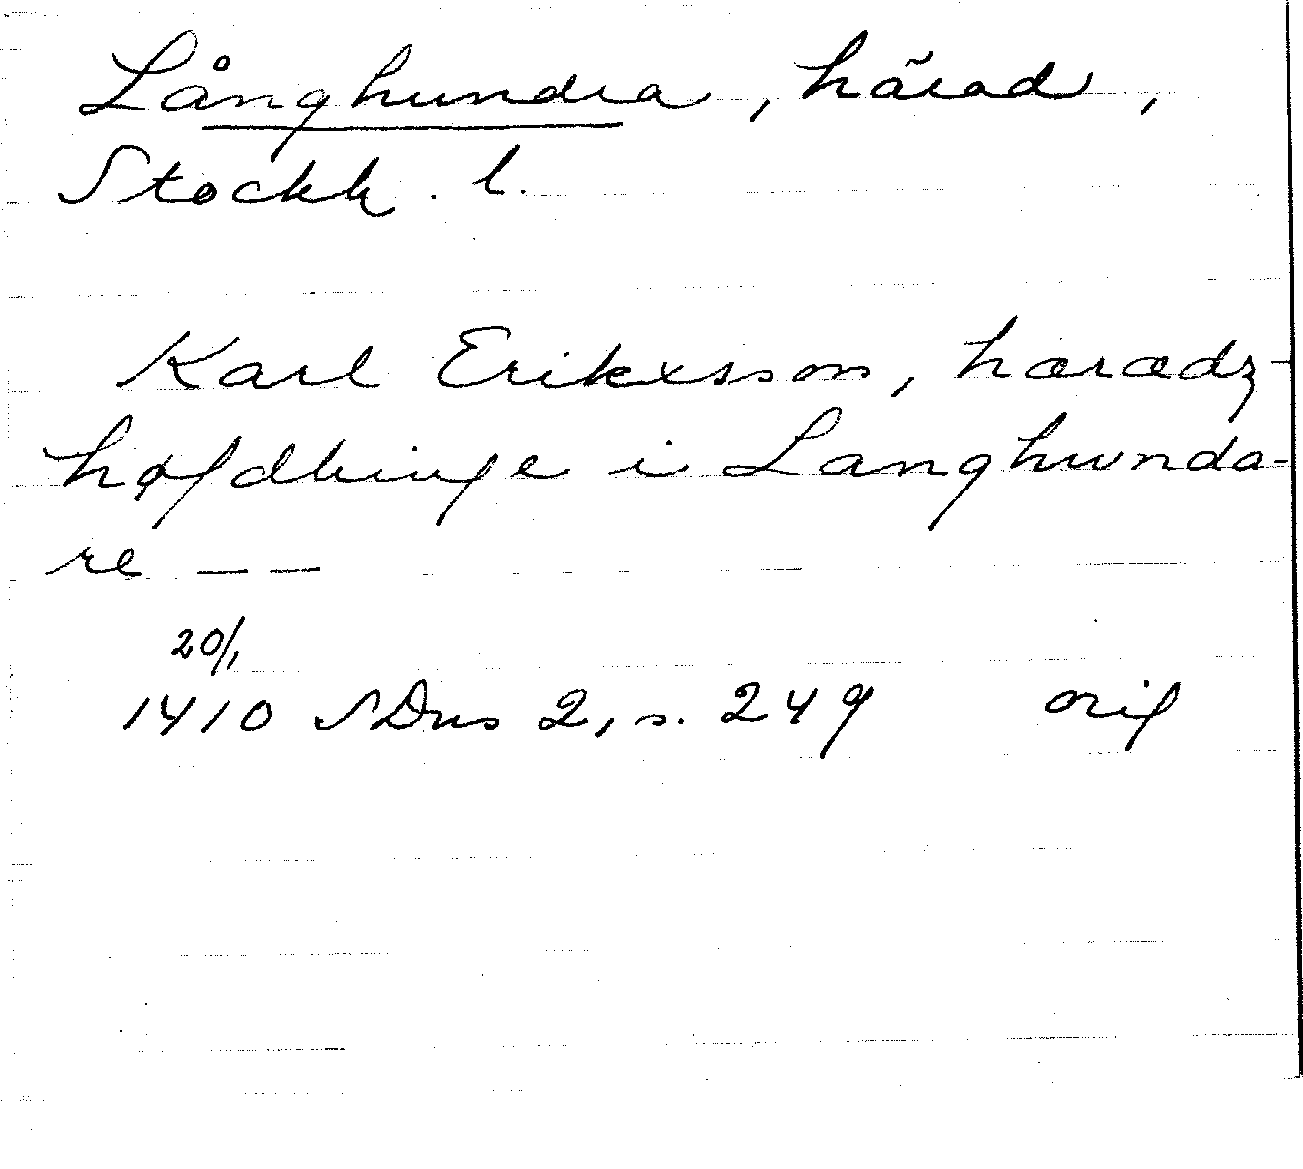 Långhundra, härad,
Stockh. l.
Karl Erikxsson, haradz-
høfdhinge i Langhunda-
re — —
20/1
1410 SDns 2, s. 249 orig